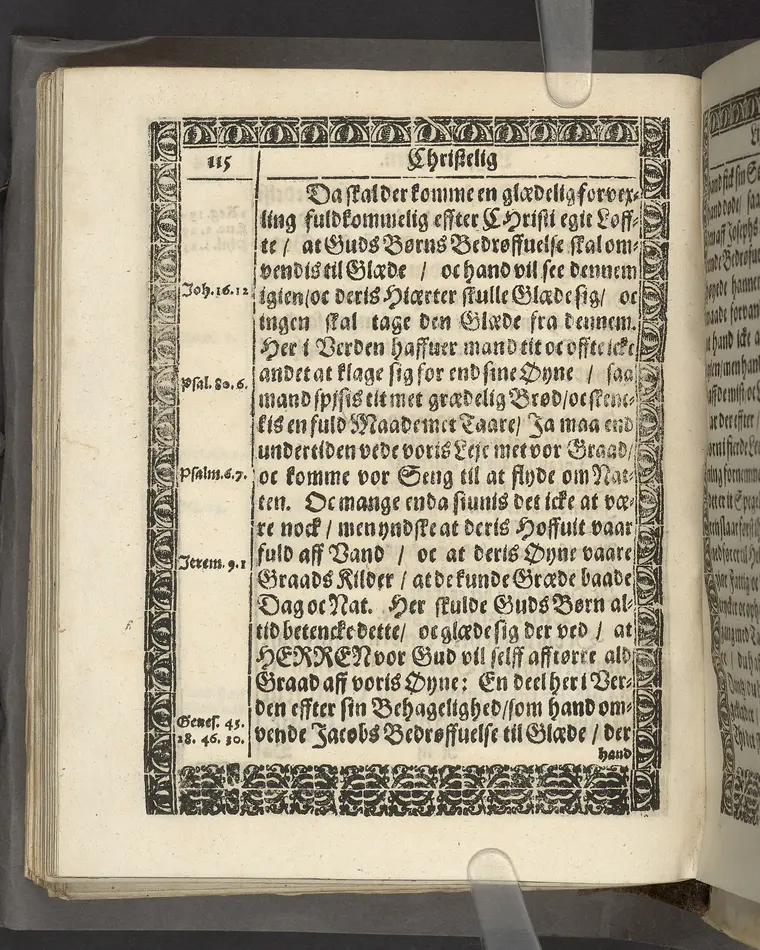 115
Christelig
Da skal der komme en glædelig forvex-
ling fuldkommelig effter CHristi egit Løff-
te / at Guds Børns Bedrøffuelse skal om-
vendis til Glæde / oc hand vil see dennem
Joh. 16. 12
igien/oc deris Hiærter skulle Glæde sig/ oc
ingen skal tage den Glæde fra dennem.
Her i Verden haffuer mand tit oc offte icke
andet at klage sig for end sine Øyne / saa
Psal. 80. 6.
mand spisis tit met grædelig Brød/oc skenc-
kis en fuld Maade met Taare/ Ja maa end
undertiden vede voris Leje met vor Graad/
Psalm. 6. 7.
oc komme vor Seng til at flyde om Nat-
ten. Oc mange enda siunis det icke at væ-
re nock / men yndske at deris Hoffuit vaar
fuld aff Vand / oc at deris Øyne vaare
Jerem. 9. 1
Graads Kilder / at de kunde Græde baade
Dag oc Nat. Her skulde Guds Børn al-
tid betencke dette/ oc glæde sig der ved / at
HERREN vor Gud vil selff afftørre ald
Graad aff voris Øyne: En deel her i Ver-
den effter sin Behagelighed/som hand om-
Genes. 45.
28. 46. 30.
vende Jacobs Bedrøffuelse til Glæde / der
hand